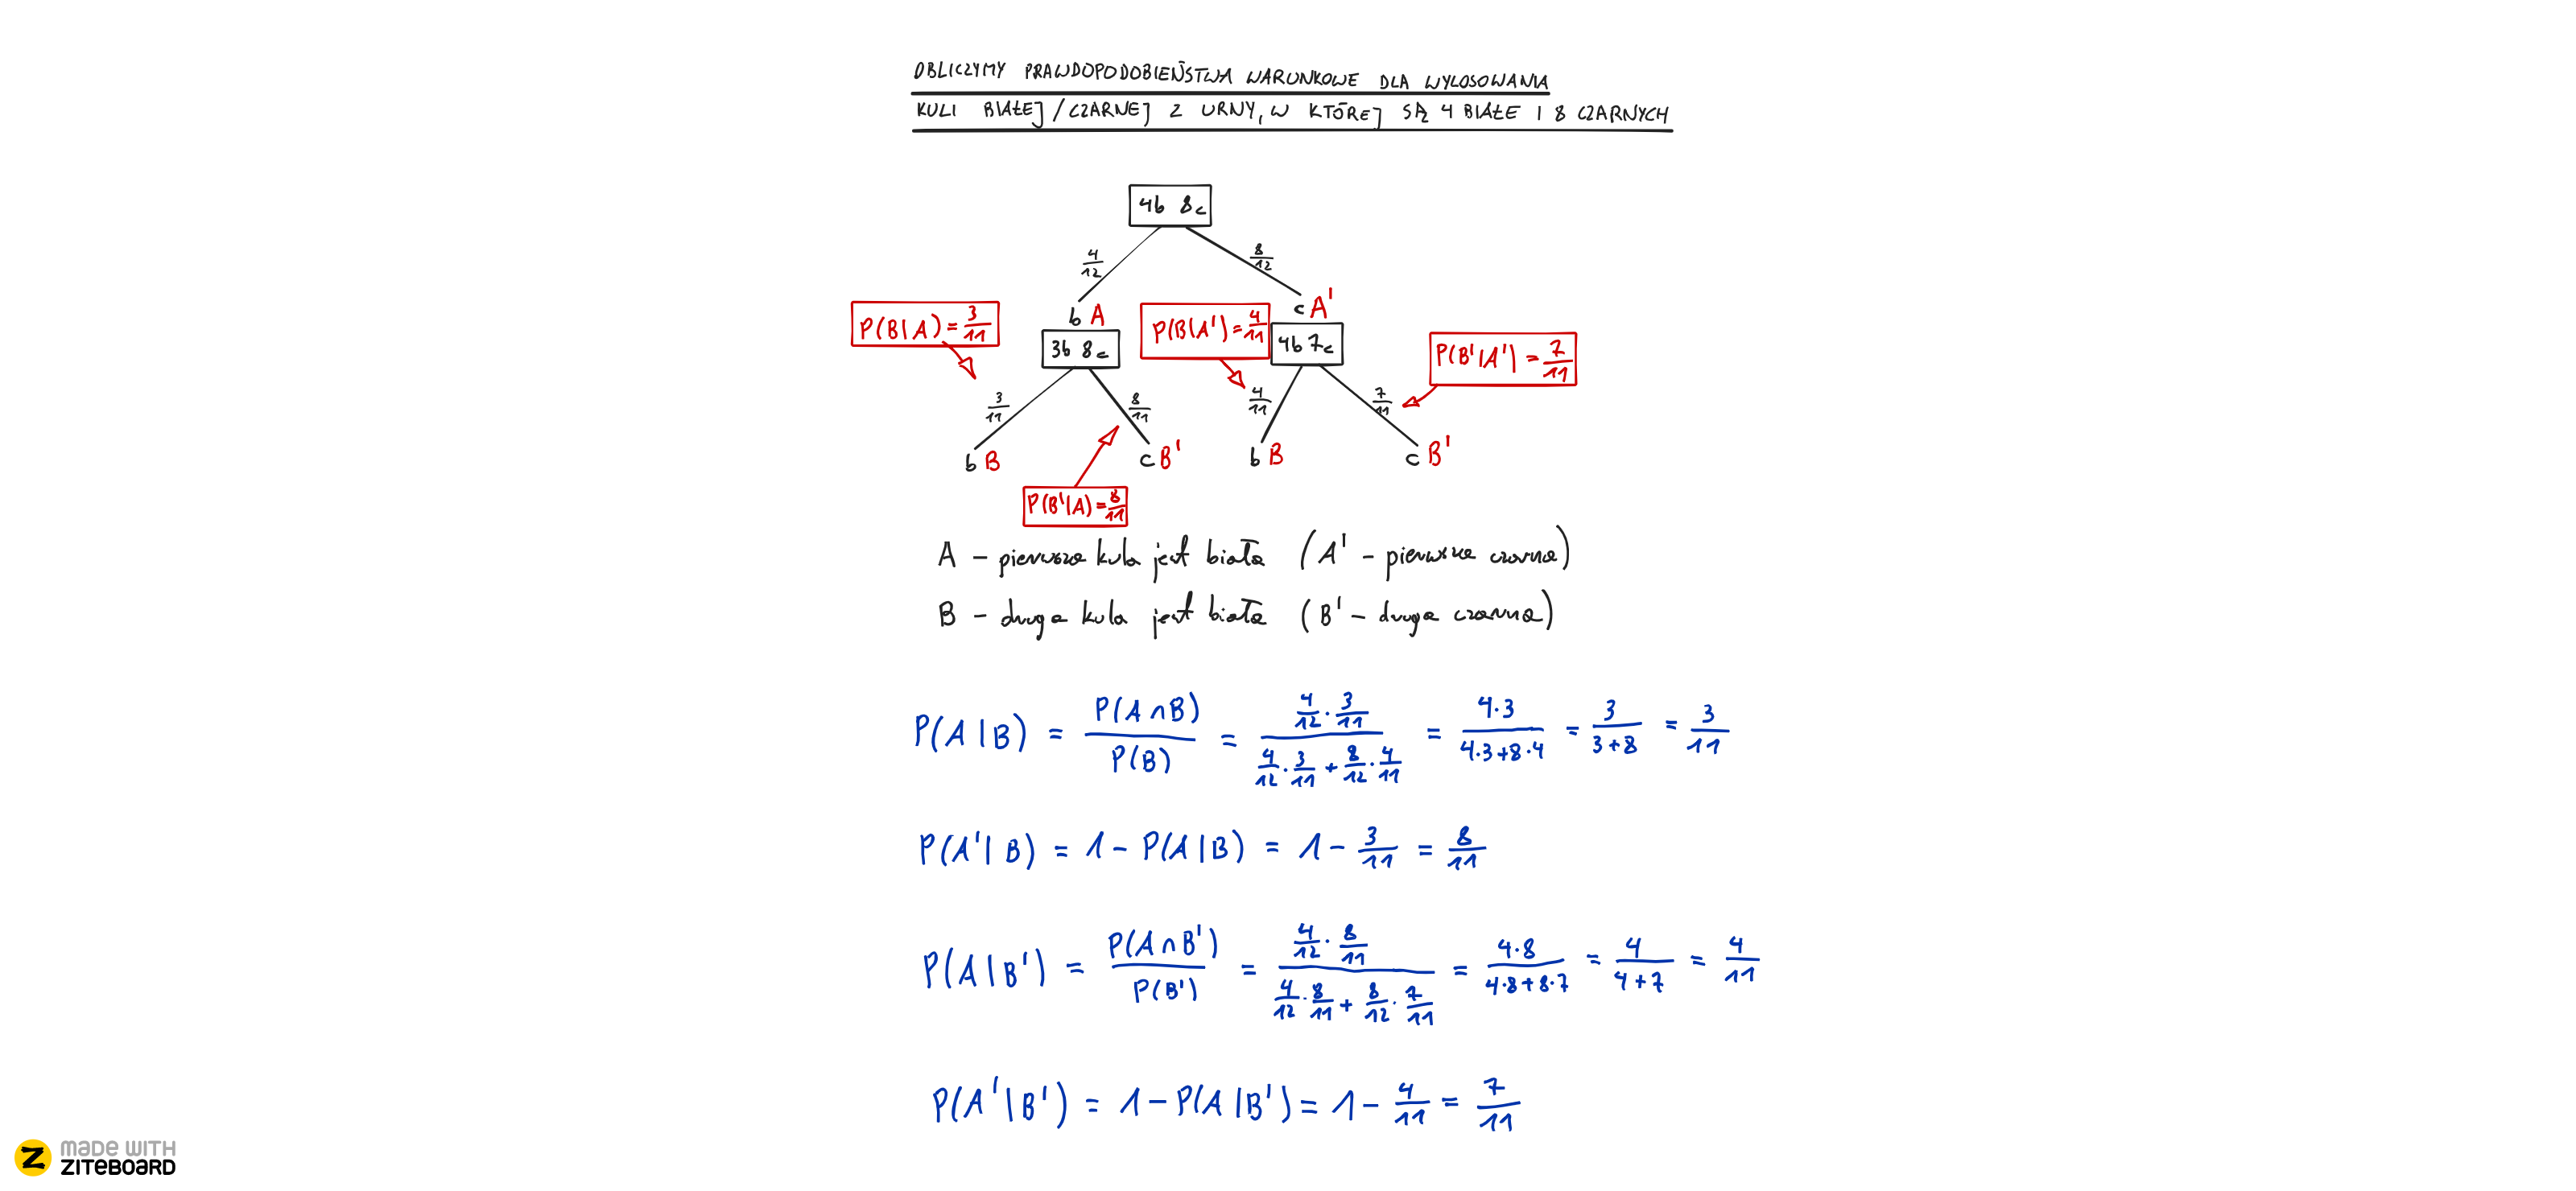 OBLICZYMY PRAWDOPODOBIEŃSTWA WARUNKOWE DLA WYLOSOWANIA
KULI BIAŁEJ/CZARNEJ Z URNY, W KTÓREJ SĄ 4 BIAŁE I 8 CZARNYCH
4b 8c
4/12 8/12
b A c A'
P(B|A) = 3/11 P(B|A') = 4/11 P(B'|A') = 7/11
3b 8c 4b 7c
3/11 8/11 4/11 7/11
b B c B' b B c B'
P(B'|A) = 8/11
A – pierwsza kula jest biała (A' – pierwsza czarna)
B – druga kula jest biała (B' – druga czarna)
P(A|B) = P(A∩B)/P(B) = (4/12 · 3/11)/(4/12 · 3/11 + 8/12 · 4/11) = 4·3/(4·3+8·4) = 3/(3+8) = 3/11
P(A'|B) = 1 – P(A|B) = 1 – 3/11 = 8/11
P(A|B') = P(A∩B')/P(B') = (4/12 · 8/11)/(4/12 · 8/11 + 8/12 · 7/11) = 4·8/(4·8+8·7) = 4/(4+7) = 4/11
P(A'|B') = 1 – P(A|B') = 1 – 4/11 = 7/11
Z MADE WITH
ZITEBOARD